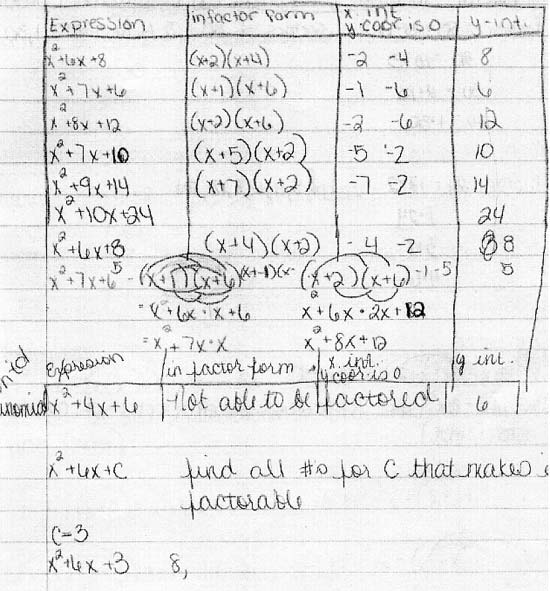 Expression in factor form x. int y. coor is 0 y-int.
x²+6x+8 (x+2)(x+4) -2 -4 8
x²+7x+6 (x+1)(x+6) -1 -6 6
x²+8x+12 (x+2)(x+6) -2 -6 12
x²+7x+10 (x+5)(x+2) -5 -2 10
x²+9x+14 (x+7)(x+2) -7 -2 14
x²+10x+24 24
x²+6x+8 (x+4)(x+2) -4 -2 8
x²+7x+6 5 (x+1)(x+6) (x+2)(x+6) -1 -5 5
= x²+6x·1x+6 x²+6x·2x+12
= x²+7x·x x²+8x+12
Expresion in factor form x. int. y coor is 0 y int.
x²+4x+6 not able to be factored 6
x²+6x+C find all #s for C that makes
factorable
C=3
x²+6x+3 8,